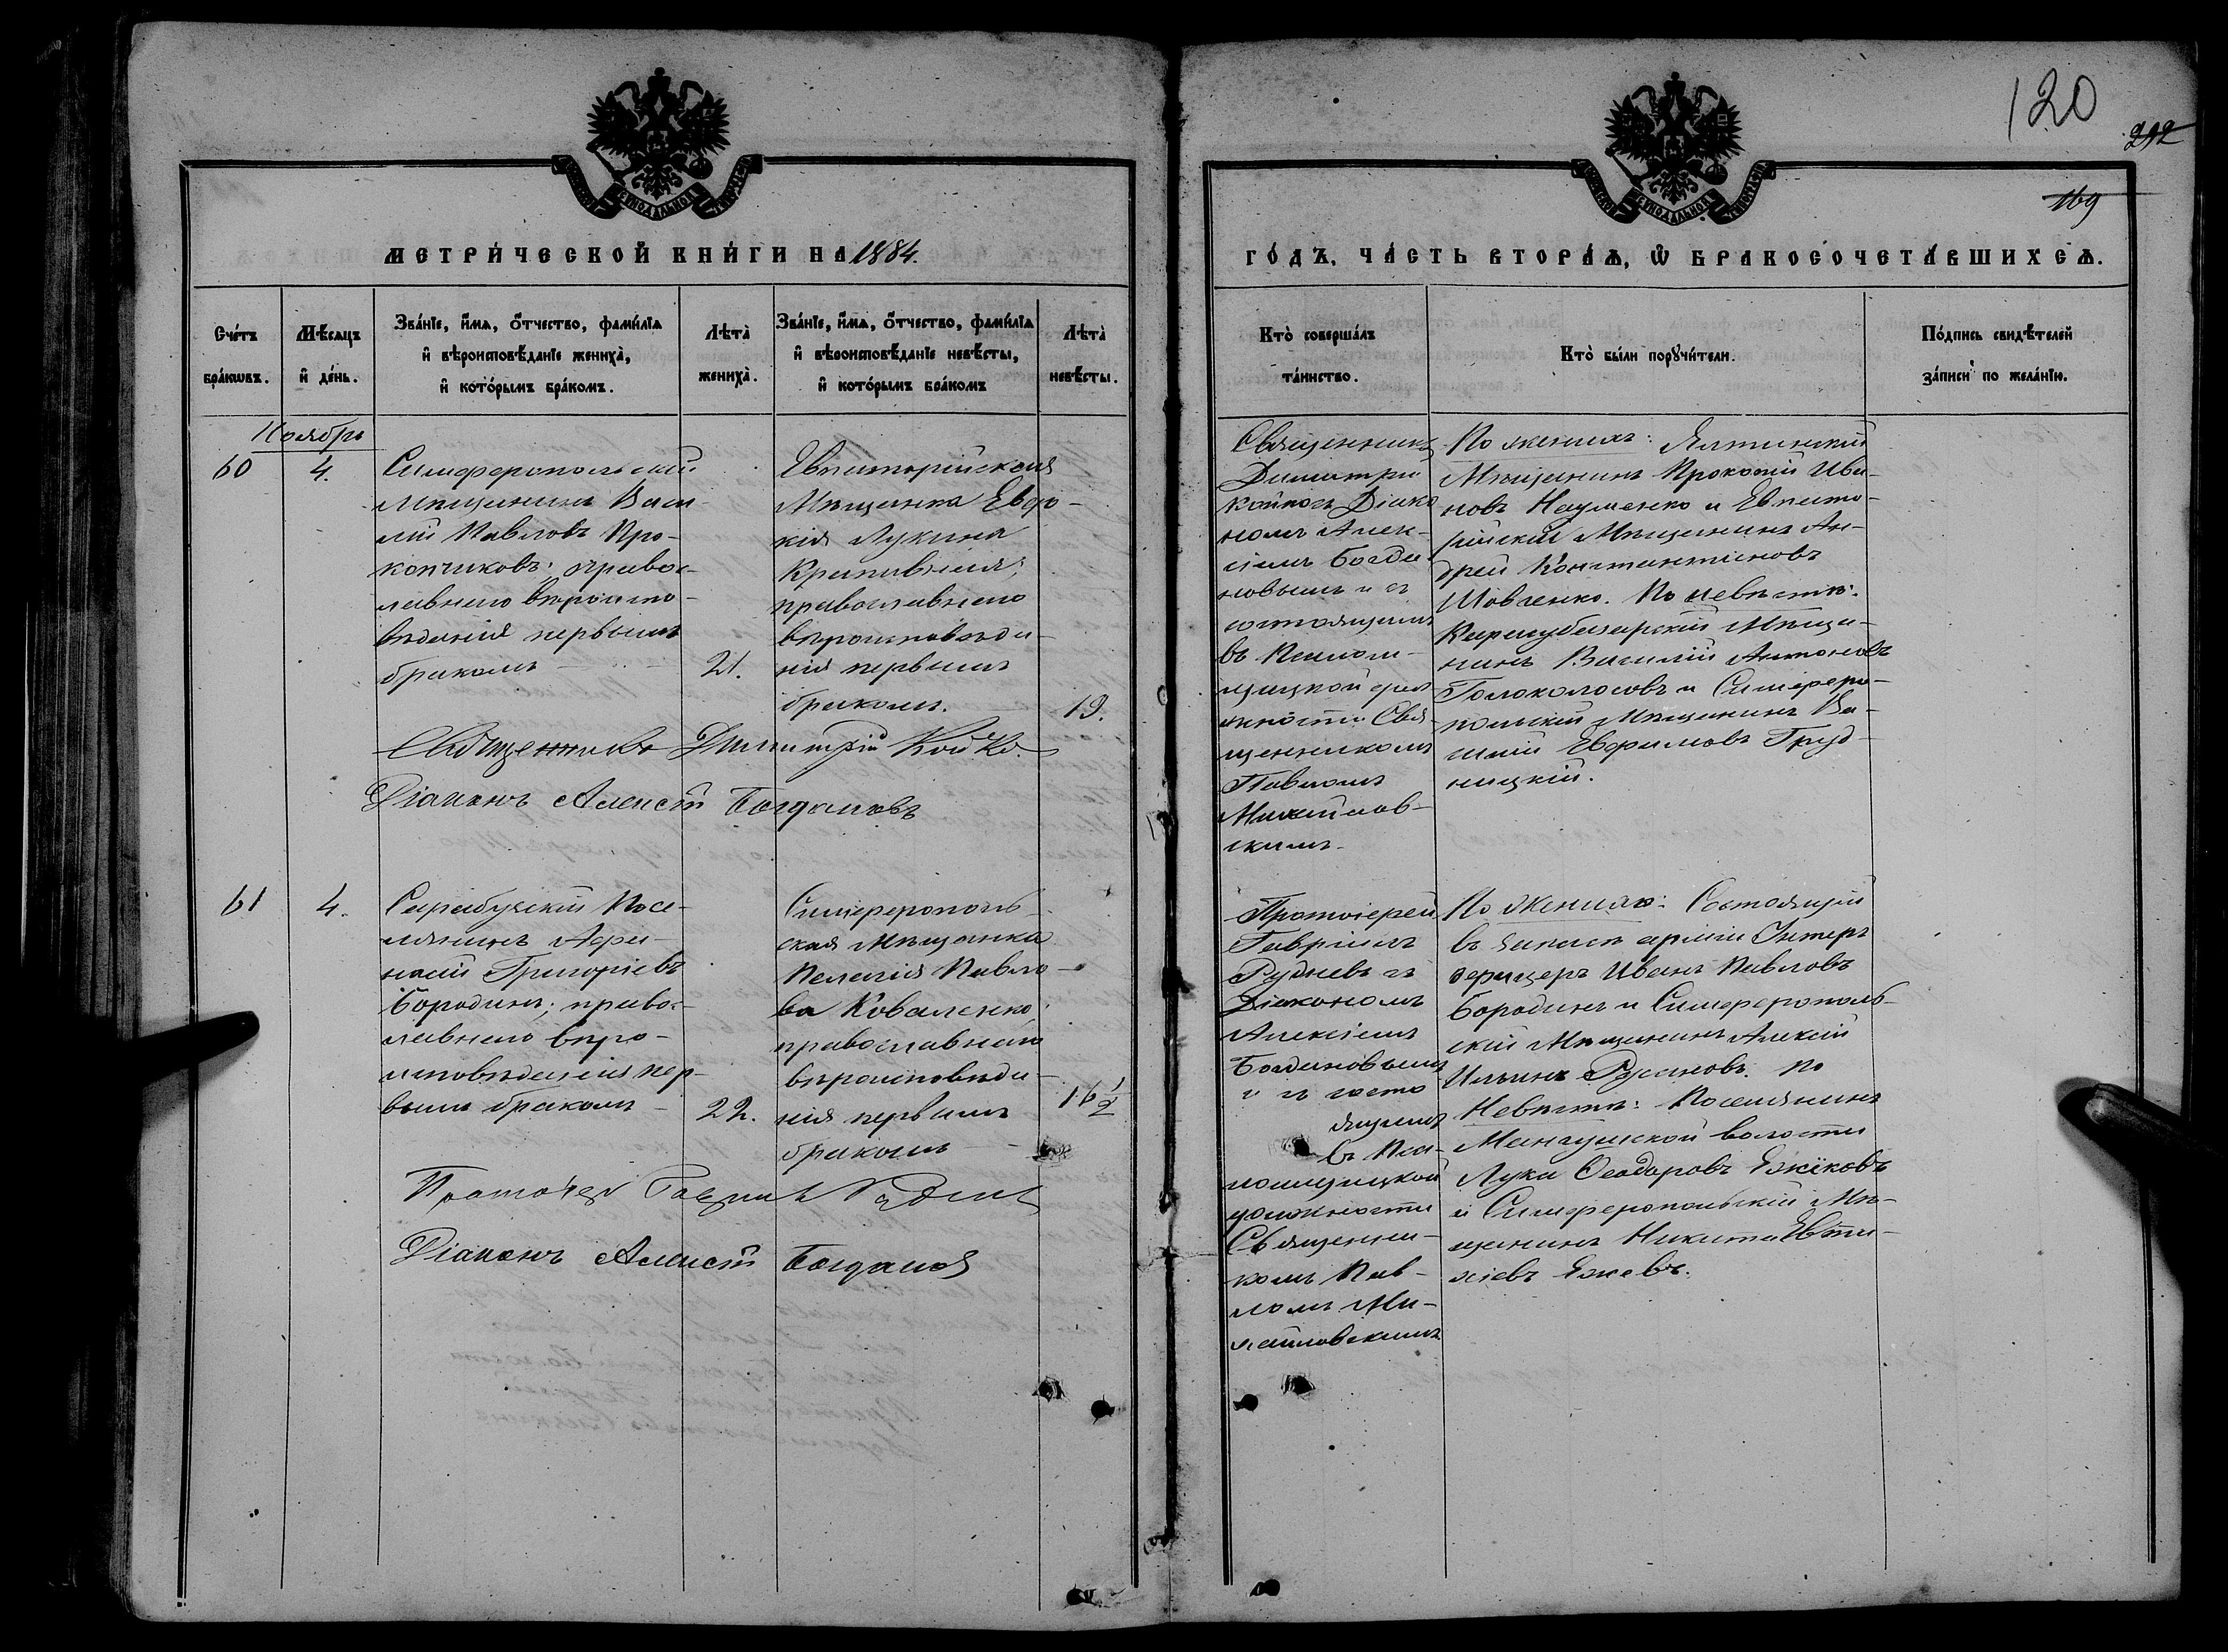 120
212
169
МЕТРИ́ЧЕСКОЙ КНИ́ГИ НА 1884.
ГО́ДЪ, ЧА́СТЬ ВТОРА́Ѧ, Ѿ БРАКОСОЧЕТА́ВШИХСѦ.
Сче́тъ
бра́кѡвъ.
Мѣ́сѧцъ
и҆ де́нь.
Зва́нїе, и҆́мѧ, ѻ҆́тчество, фами́лїѧ
и҆ вѣроисповѣ́данїе жениха̀,
и҆ кото́рымъ бра́комъ.
Лѣта̀
жениха̀.
Зва́нїе, и҆́мѧ, ѻ҆́тчество, фами́лїѧ
и҆ вѣроисповѣ́данїе невѣ́сты,
и҆ кото́рымъ бра́комъ
Лѣта̀
невѣ́сты.
Кто̀ соверша́лъ
та́инство.
Кто̀ бы́ли порꙋчи́тели.
По́дпись свидѣ́телей
за́писи по жела́нїю.
Ноябрь
60
4.
Симферопольскій
Мѣщанинъ Васи-
лій Павловъ Про-
копчиковъ; правос-
лавнаго вѣроиспо-
вѣданія первымъ
бракомъ
21.
Евпаторійская
Мѣщанка Евдо-
кія Лукина
православнаго
вѣроисповѣда-
нія первымъ
бракомъ.
19.
Священникъ
Димитрій
Койко съ Діако
номъ Алек-
сіемъ Богда-
новымъ и съ
состоящимъ
въ Псалом-
щицкой дол
жности Свя-
щенникомъ
Павломъ
Михайлов-
скимъ
По женихѣ: Ялтинскій
Мѣщанинъ Прокопій Ива-
новъ Науменко и Евпато-
рійскій Мѣщанинъ Ан-
дрей Константиновъ
Шовченко. По невѣстѣ:
Карасубазарскій Мѣща-
нинъ Василій Антоновъ
Голоколосовъ и Симферо-
польскій Мѣщанинъ Ва-
силій Евфимовъ Груд-
ницкій.
Священникъ Димитрій Койко.
Діаконъ Алексѣй Богдановъ
61
4.
Сарабузскій Посе-
лянинъ Афа-
насій Григоріевъ
Бородинъ; правос-
лавнаго вѣро-
исповѣданія пер-
вымъ бракомъ
22.
Симферополь-
ская Мѣщанка
Пелагія Павло-
ва Коваленко;
православнаго
вѣроисповѣда-
нія первымъ
бракомъ
16 1/2
Протоіерей
Гавріилъ
Рудневъ съ
Діакономъ
Алексіемъ
Богдановымъ
и съ состо
ящимъ
въ Пса-
ломщицкой
должности
Священни-
комъ Пав-
ломъ Ми-
хайловскимъ
По женихѣ: Состоящій
въ запасѣ арміи Унтеръ
офицеръ Иванъ Павловъ
Бородинъ и Симферополь-
скій Мѣщанинъ Алексій
Ильинъ Русановъ. По
Невѣстѣ: Поселянинъ
Мангушской волости
Лука Ѳеодоровъ
и Симферопольскій Мѣ-
щанинъ Никита Евти-
хіевъ
Протоіерей Гавріилъ Рудневъ
Діаконъ Алексѣй Богдановъ